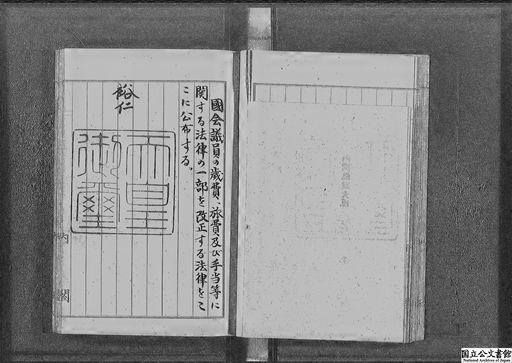 國会議員の歳費、旅費及び手当等に
関する法律の一部を改正する法律をこ
こに公布する。
裕仁
天皇
御璽
内閣
国立公文書館
National Archives of Japan